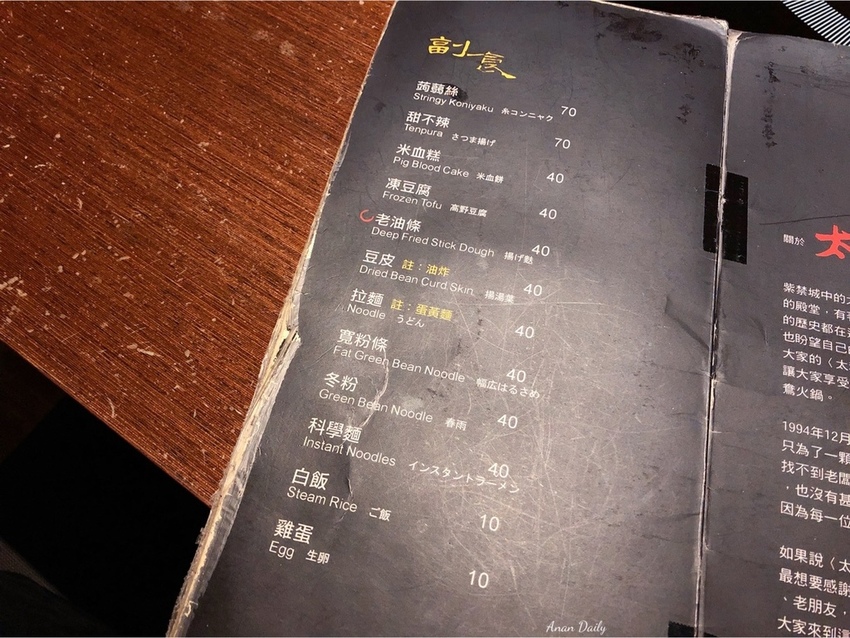 副食
蒟蒻絲 70
Stringy Koniyaku 糸コンニャク
甜不辣 70
Tenpura さつま揚げ
米血糕 40
Pig Blood Cake 米血餅
凍豆腐 40
Frozen Tofu 高野豆腐
老油條 40
Deep Fried Stick Dough 揚げ麩
豆皮 註：油炸 40
Dried Bean Curd Skin 揚湯葉
拉麵 註：蛋黃麵 40
Noodle うどん
寬粉條 40
Fat Green Bean Noodle 幅広はるさめ
冬粉 40
Green Bean Noodle 春雨
科學麵 40
Instant Noodles インスタントラーメン
白飯 10
Steam Rice ご飯
雞蛋 10
Egg 生卵
5
關於 太
紫禁城中的
的殿堂，有
的歷史都在
也盼望自己
大家的〈太
讓大家享受
鴦火鍋。
1994年12月
只為了一顆
找不到老闆
，也沒有甚
因為每一位
如果說〈太
最想要感謝
、老朋友，
大家來到這
Anan Daily